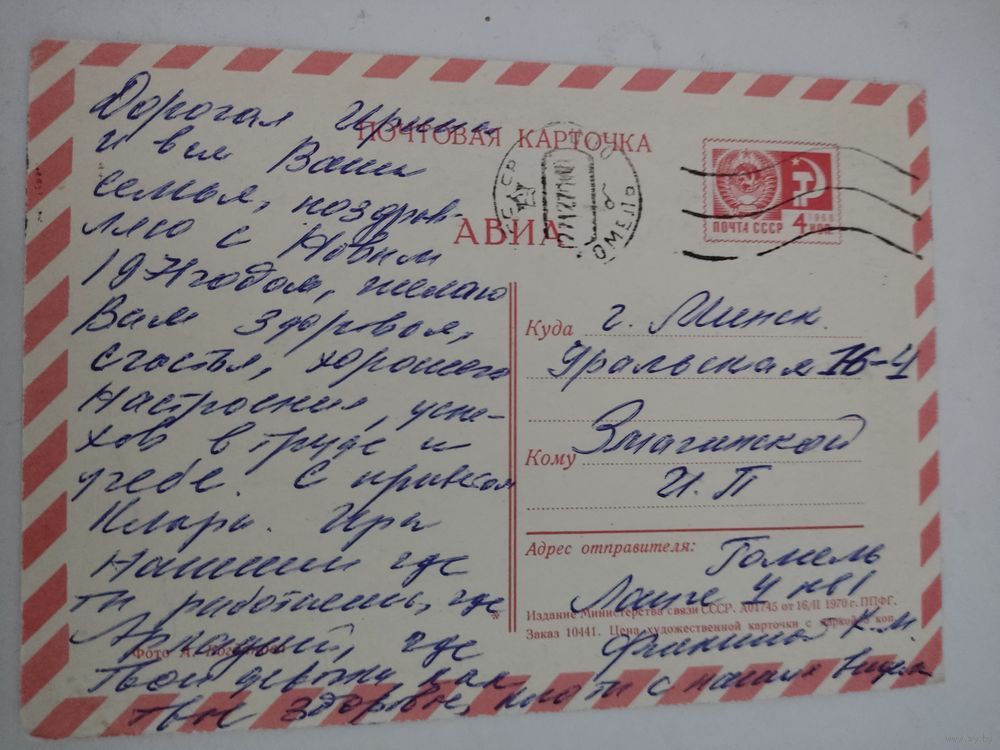 Дорогая Ирина
и вся Ваша
семья, поздрав-
ляю с Новым
1971 годом, желаю
Вам здоровья,
счастья, хорошего
настроения, успе-
хов в труде и
учебе. С приветом
Клара. Ира
Напиши где
ты работаешь, где
Аркадий, где
твои девочки, как
твое здоровье, кто с
ПОЧТОВАЯ КАРТОЧКА
АВИА
СССР
ГОМЕЛЬ
ПОЧТА СССР
1966
4 КОП
Куда г. Минск
Уральская 16-4
Кому
И. П
Адрес отправителя: Гомель
Ланге 4 кв 1
Издание Министерства связи СССР. А01745 от 16/II 1970 г. ППФГ.
Заказ 10441. Цена художественной карточки с маркой 5 коп.
К. М.
Фото А.